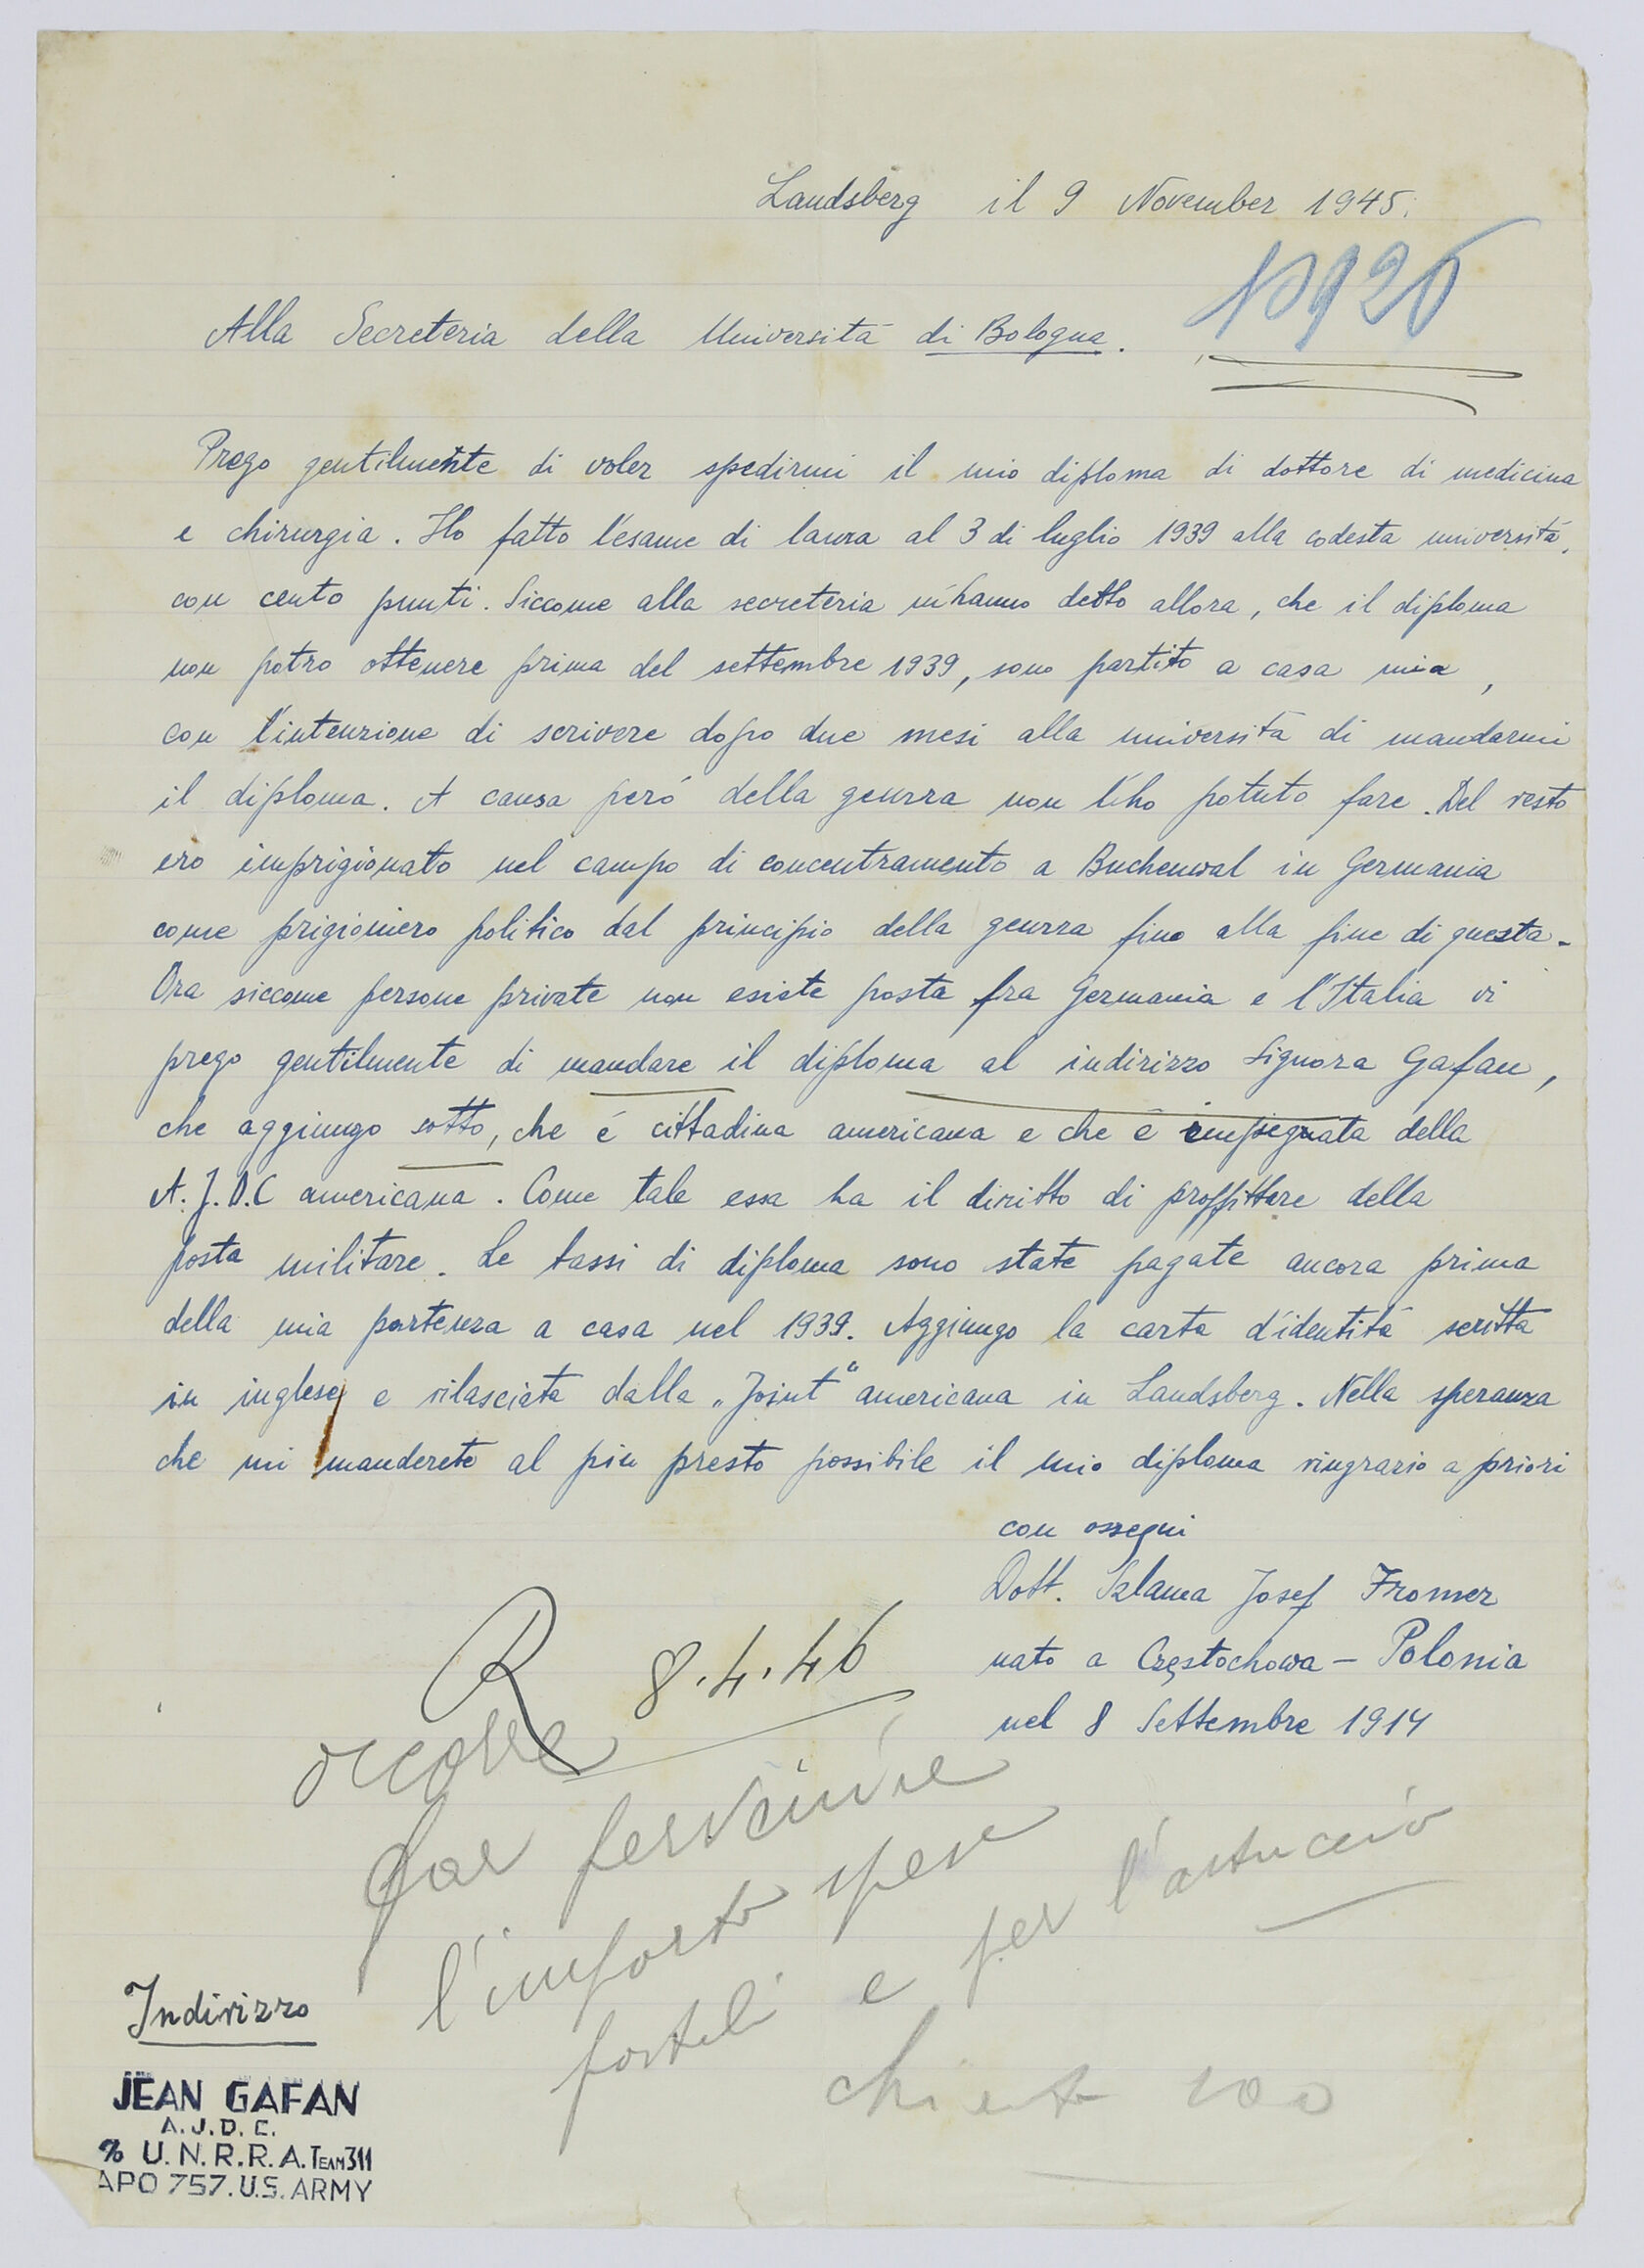 Landsberg il 9 November 1945.
Alla Secreteria della Universitá di Bologna.
Prego gentilmente di voler spedirmi il mio diploma di dottore di medicina
e chirurgia. Ho fatto l'esame di laura al 3 di luglio 1939 alla codesta universitá,
con cento punti. Siccome alla secreteria m'hanno detto allora, che il diploma
non potro ottenere prima del settembre 1939, sono partito a casa mia,
con l'intenzione di scrivere dopo due mesi alla universitá di mandarmi
il diploma. A causa peró della geurra non l'ho potuto fare. Del resto
ero imprigionato nel campo di concentramento a Buchenwal in Germania
come prigioniero politico dal principio della geurra fino alla fine di questa.
Ora siccome persone private non esiste posta fra Germania e l'Italia vi
prego gentilmente di mandare il diploma al indirizzo Signora Gafan,
che aggiungo sotto, che é cittadina americana e che é impiegnata della
A. J. D. C americana. Come tale essa ha il diritto di proffittare della
posta militare. Le tassi di diploma sono state pagate ancora prima
della mia partenza a casa nel 1939. Aggiungo la carta d'identitá scritta
in inglese e rilasciata dalla „Joint“ americana in Landsberg. Nella speranza
che mi manderete al piu presto possibile il mio diploma ringrazio a priori
con ossequi
Dott. Szlama Josef Fromer
nato a Częstochowa – Polonia
nel 8 Settembre 1914
R 8.4.46
occorre
far pervenire
l'importo spese
postali e per l'astuccio
100
Indirizzo
JEAN GAFAN
A.J.D.C.
% U.N.R.R.A. TEAM 311
APO 757. U.S. ARMY